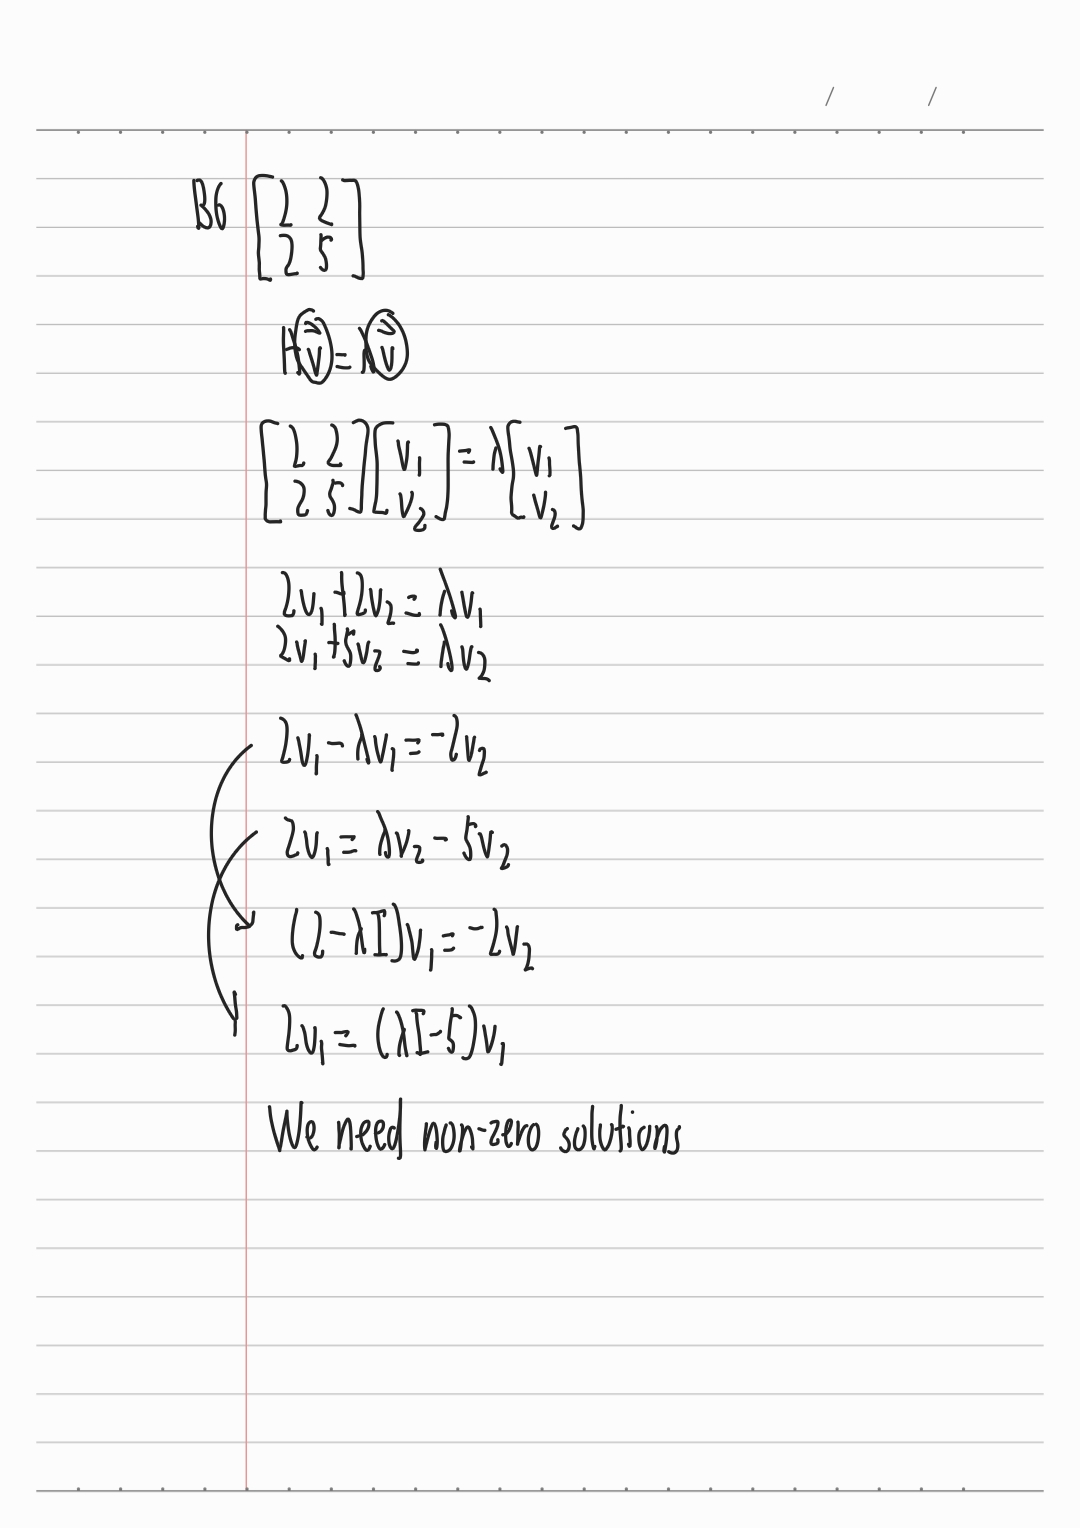 B6 [2 2
2 5]
Av⃗ = λv⃗
[2 2
2 5] [v₁
v₂] = λ [v₁
v₂]
2v₁+2v₂ = λv₁
2v₁+5v₂ = λv₂
2v₁-λv₁ = -2v₂
2v₁ = λv₂ - 5v₂
(2-λI)v₁ = -2v₂
2v₁ = (λI-5)v₁
We need non-zero solutions